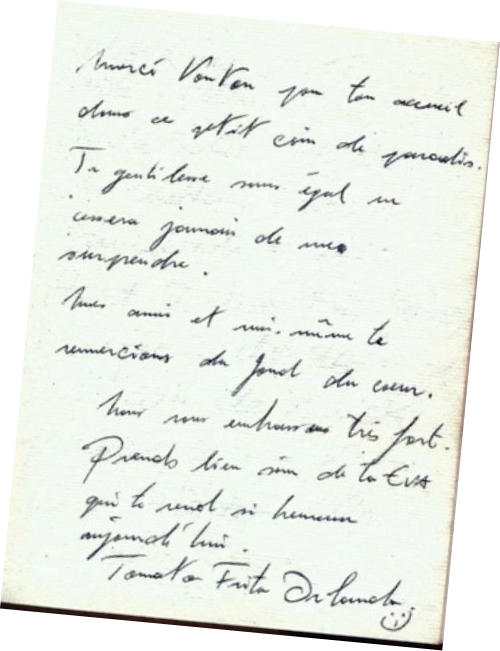 Merci VonVon pour ton accueil
dans ce petit coin de paradis.
Ta gentillesse sans égal ne
cessera jamais de nous
surprendre.
Mes amis et moi-même te
remercions du fond du coeur.
Nous vous embrassons très fort.
Prends bien soin de ta EVA
qui te rend si heureux
aujourd'hui.
Tomata Frita Orlando